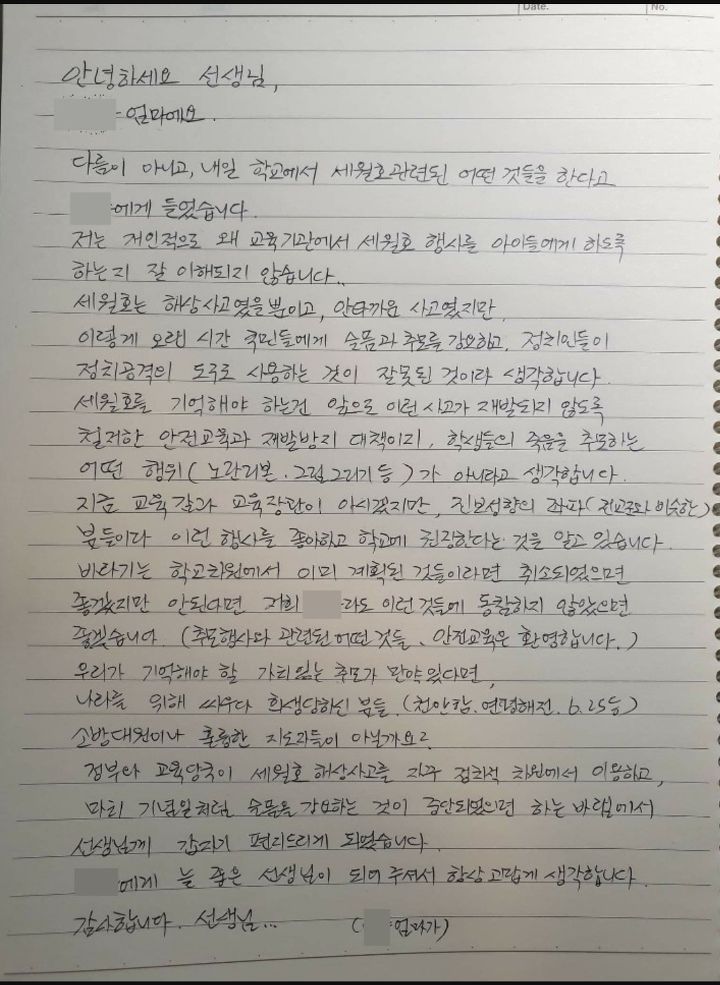 Date.
No.
안녕하세요 선생님,
엄마예요.
다름이 아니고, 내일 학교에서 세월호관련된 어떤 것들을 한다고
에게 들었습니다.
저는 개인적으로 왜 교육기관에서 세월호 행사를 아이들에게 하도록
하는지 잘 이해되지 않습니다..
세월호는 해상사고였을뿐이고, 안타까운 사고였지만,
이렇게 오랜 시간 국민들에게 슬픔과 추모를 강요하고, 정치인들이
정치공격의 도구로 사용하는 것이 잘못된 것이라 생각합니다.
세월호를 기억해야 하는건 앞으로 이런 사고가 재발되지 않도록
철저한 안전교육과 재발방지 대책이지, 학생들의 죽음을 추모하는
어떤 행위(노란리본.그림그리기 등)가 아니라고 생각합니다.
지금 교육감과 교육장관이 아시겠지만, 진보성향의 좌파(전교조와 비슷한)
분들이다 이런 행사를 좋아하고 학교에 권장한다는 것을 알고 있습니다.
바라기는 학교차원에서 이미 계획된 것들이라면 취소되었으면
좋겠지만 안된다면 저희 라도 이런 것들에 동참하지 않았으면
좋겠습니다. (추모행사와 관련된 어떤 것들, 안전교육은 환영합니다.)
우리가 기억해야 할 가치있는 추모가 만약 있다면,
나라를 위해 싸우다 희생당하신 분들.(천안함.연평해전.6.25등)
소방대원이나 훌륭한 지도자들이 아닐까요?
정부와 교육당국이 세월호 해상사고를 자꾸 정치적 차원에서 이용하고,
마치 기념일처럼 슬픔을 강요하는 것이 중단되었으면 하는 바램에서
선생님께 갑자기 편지드리게 되었습니다.
에게 늘 좋은 선생님이 되어 주셔서 항상 고맙게 생각합니다.
감사합니다. 선생님... ( 엄마가)